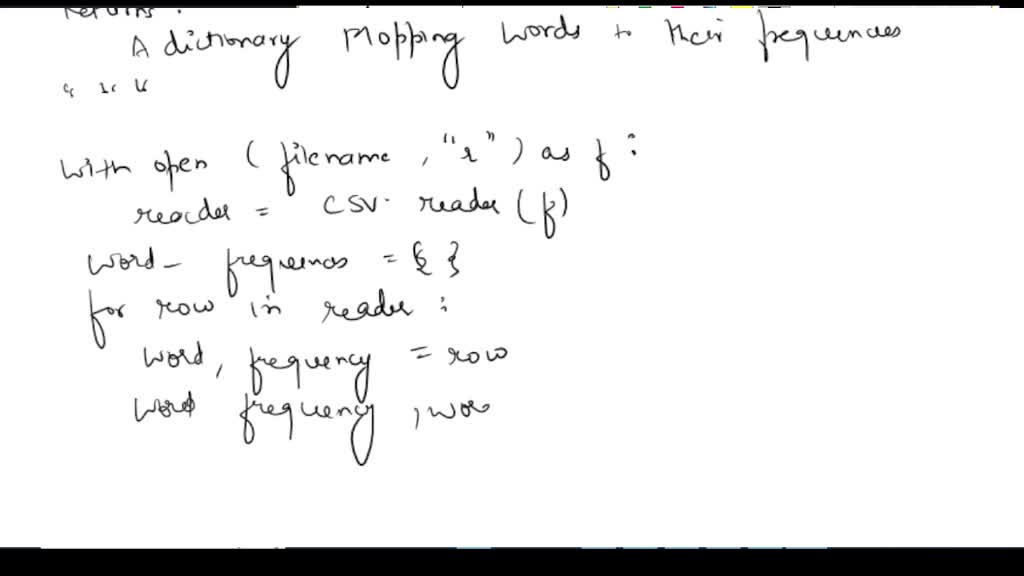 Returns :
A dictionary Mapping words to their frequencies
" " "
with open ( filename , "r" ) as f :
reader = CSV. reader (f)
word_ frequences = { }
for row in reader :
word, frequency = row
word frequency , wor